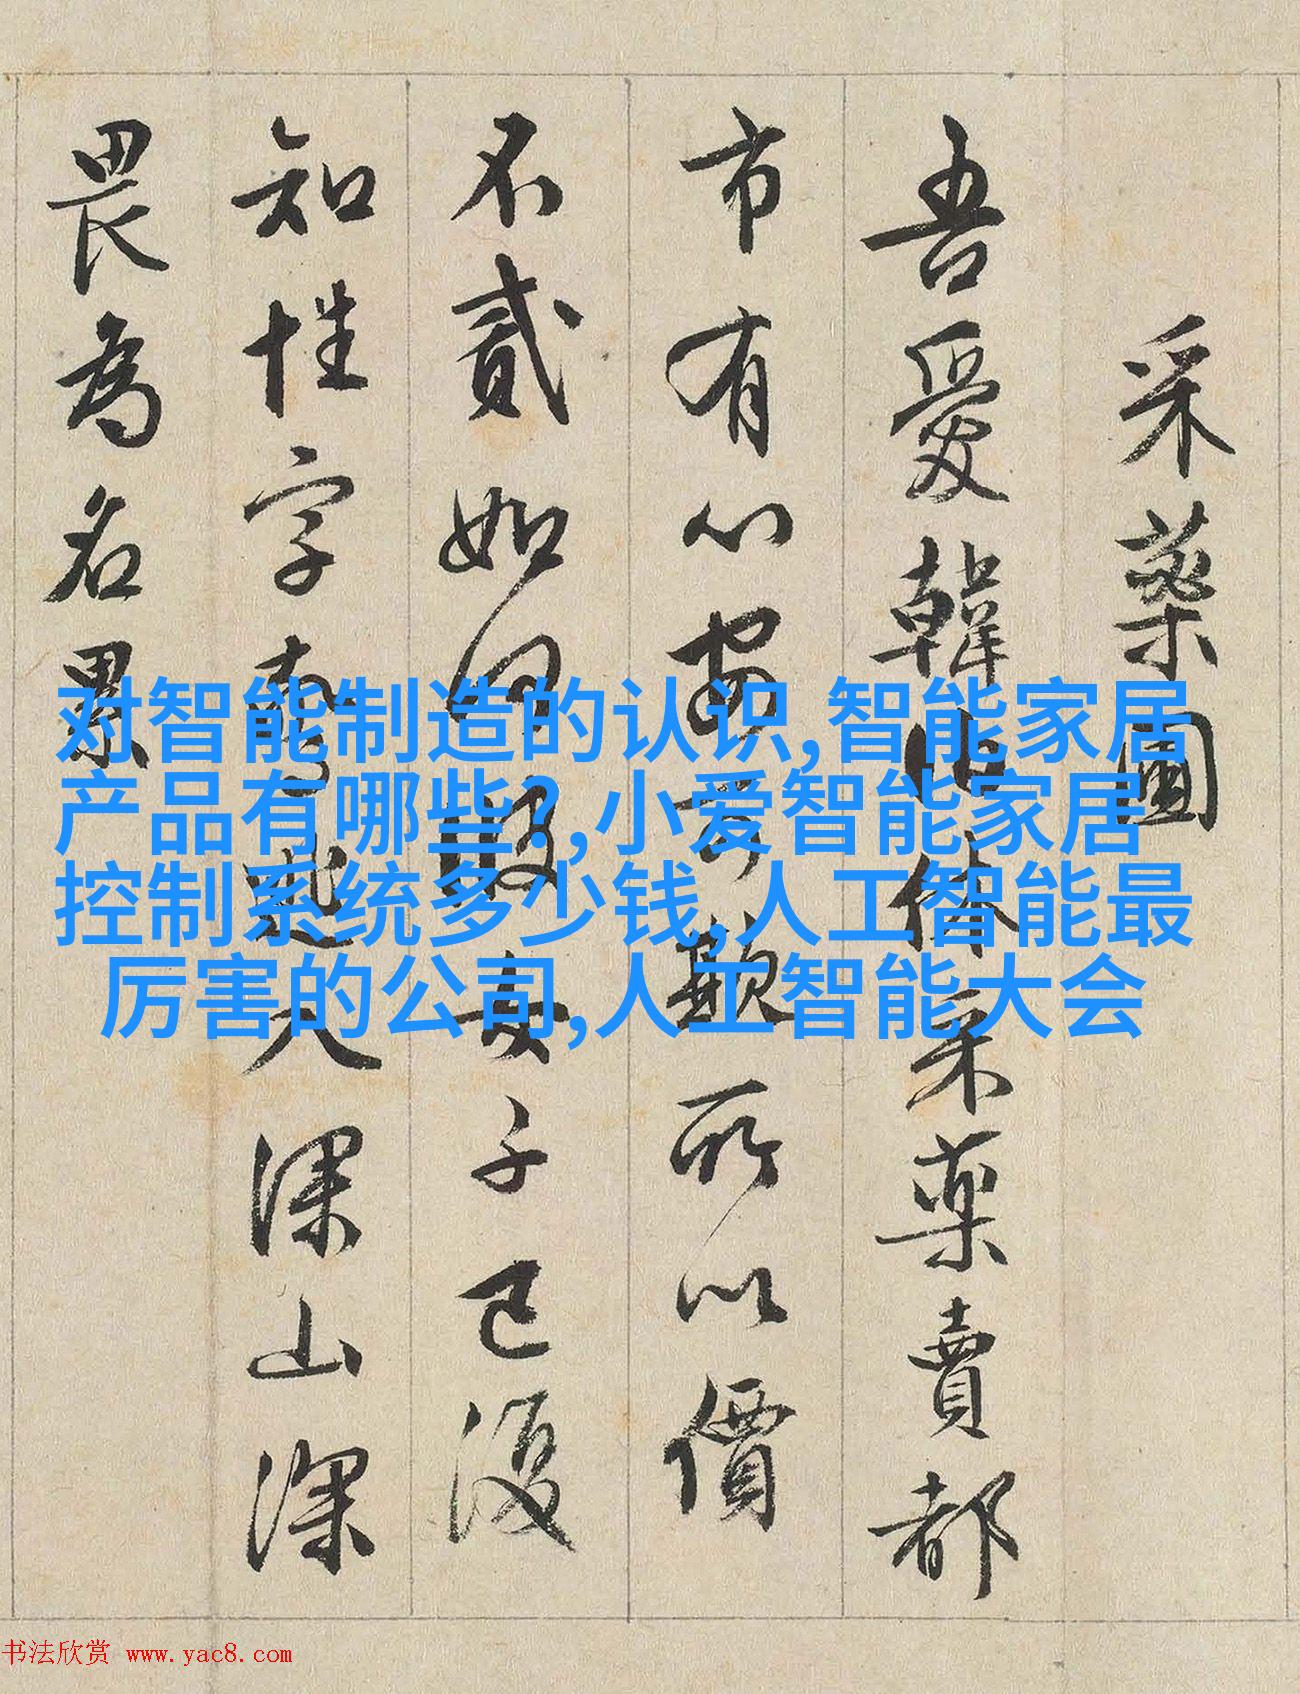 采藥圖
吾愛韓伯休采藥賣都
市有心安可欺所以價
不貳如何彼女子已復
知性字入深山深
畏為名累
对智能制造的认识,智能家居
产品有哪些?,小爱智能家居
控制系统多少钱,人工智能最
厉害的公司,人工智能大会
书法欣赏 www.yac8.com